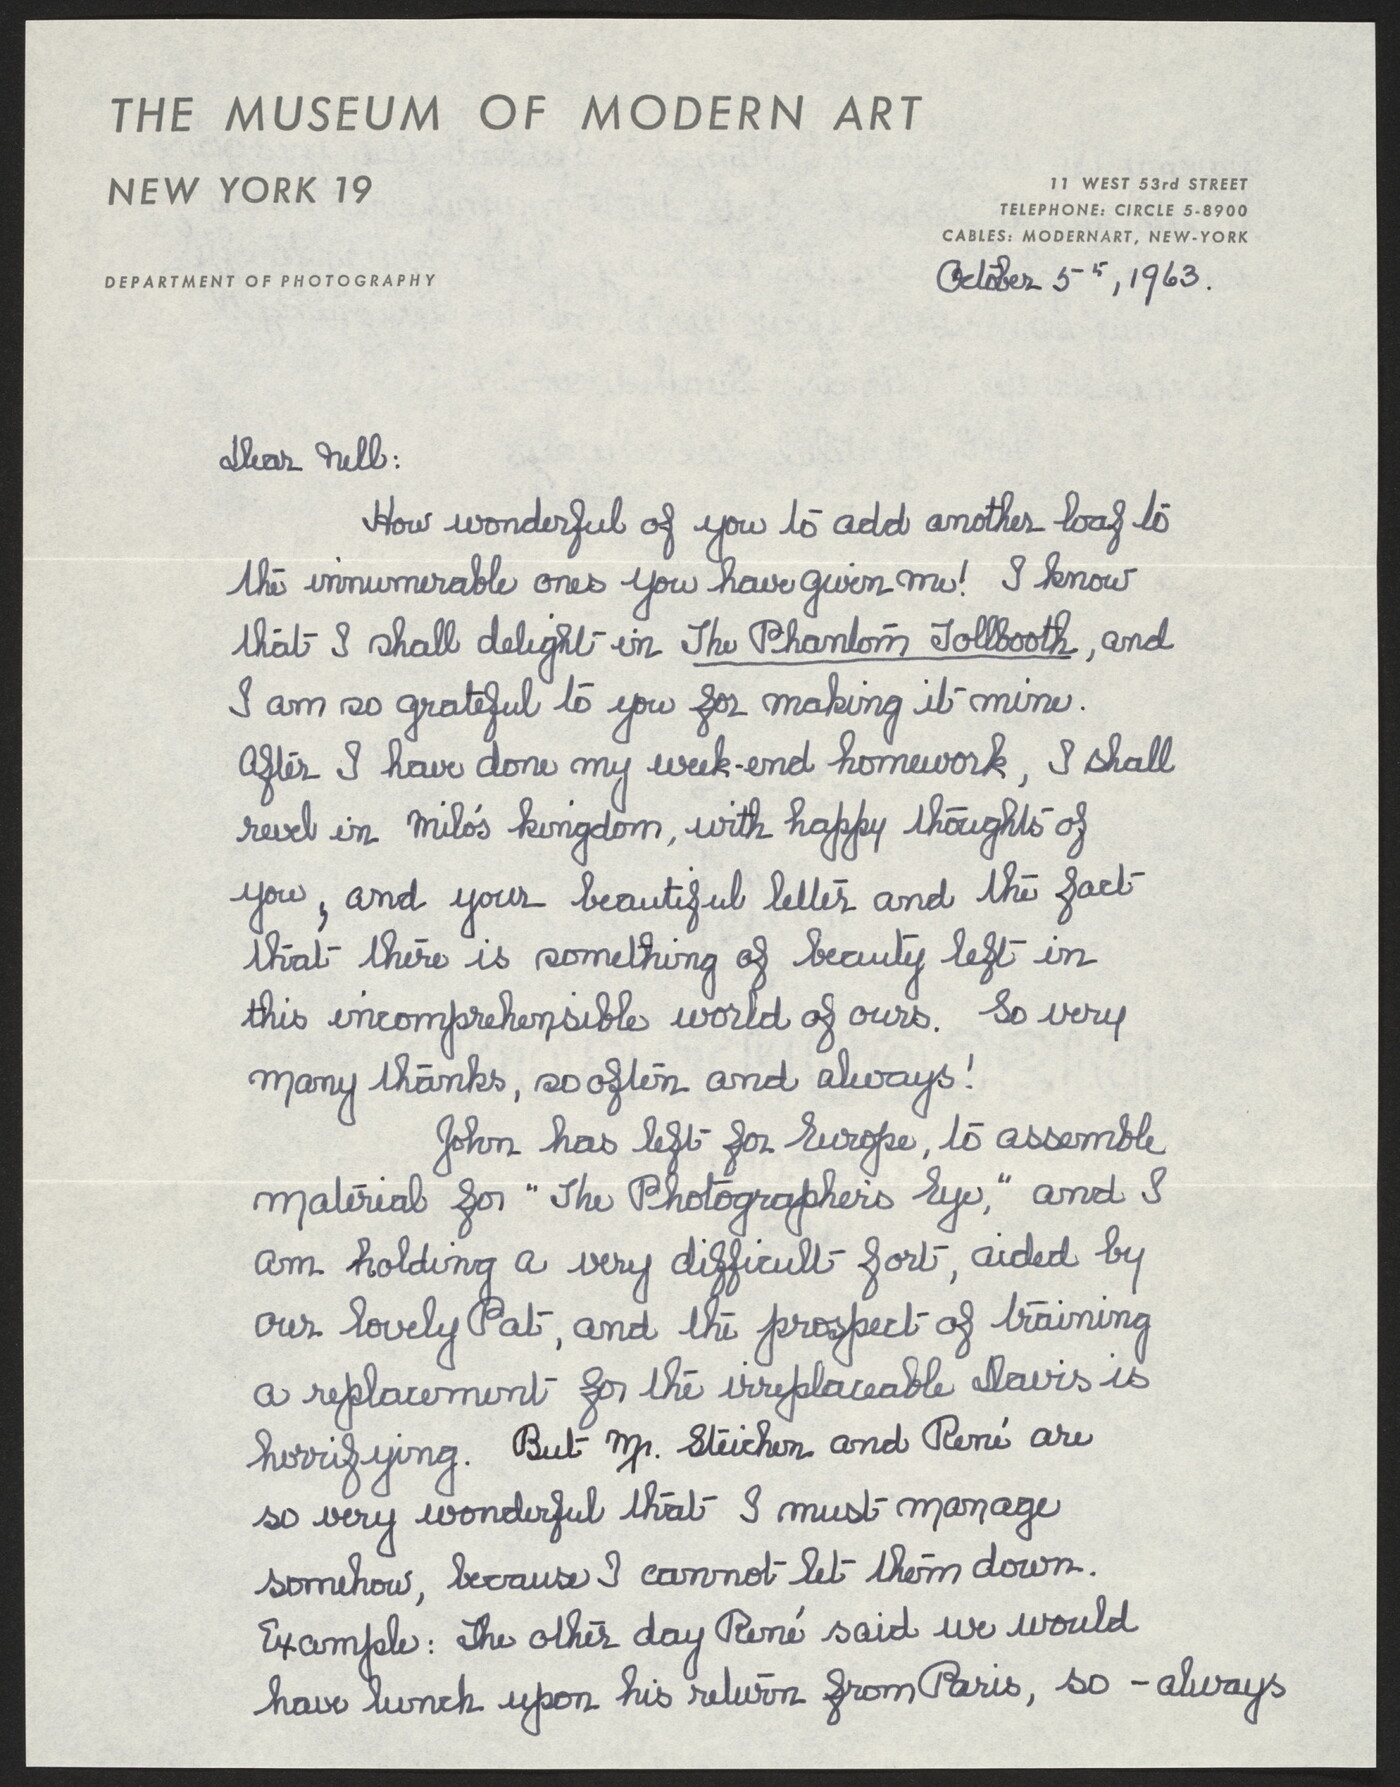 THE MUSEUM OF MODERN ART
NEW YORK 19
11 WEST 53rd STREET
TELEPHONE: CIRCLE 5-8900
CABLES: MODERNART, NEW-YORK
DEPARTMENT OF PHOTOGRAPHY
October 5th, 1963.
Dear Nell:
How wonderful of you to add another loaf to
the innumerable ones you have given me! I know
that I shall delight in The Phantom Tollbooth, and
I am so grateful to you for making it mine.
After I have done my week-end homework, I shall
revel in Milo's kingdom, with happy thoughts of
you, and your beautiful letter and the fact
that there is something of beauty left in
this incomprehensible world of ours. So very
many thanks, so often and always!
John has left for Europe, to assemble
material for "The Photographer's Eye," and I
am holding a very difficult fort, aided by
our lovely Pat, and the prospect of training
a replacement for the irreplaceable Davis is
horrifying. But Mr. Steichen and René are
so very wonderful that I must manage
somehow, because I cannot let them down.
Example: The other day René said we would
have lunch upon his return from Paris, so - always